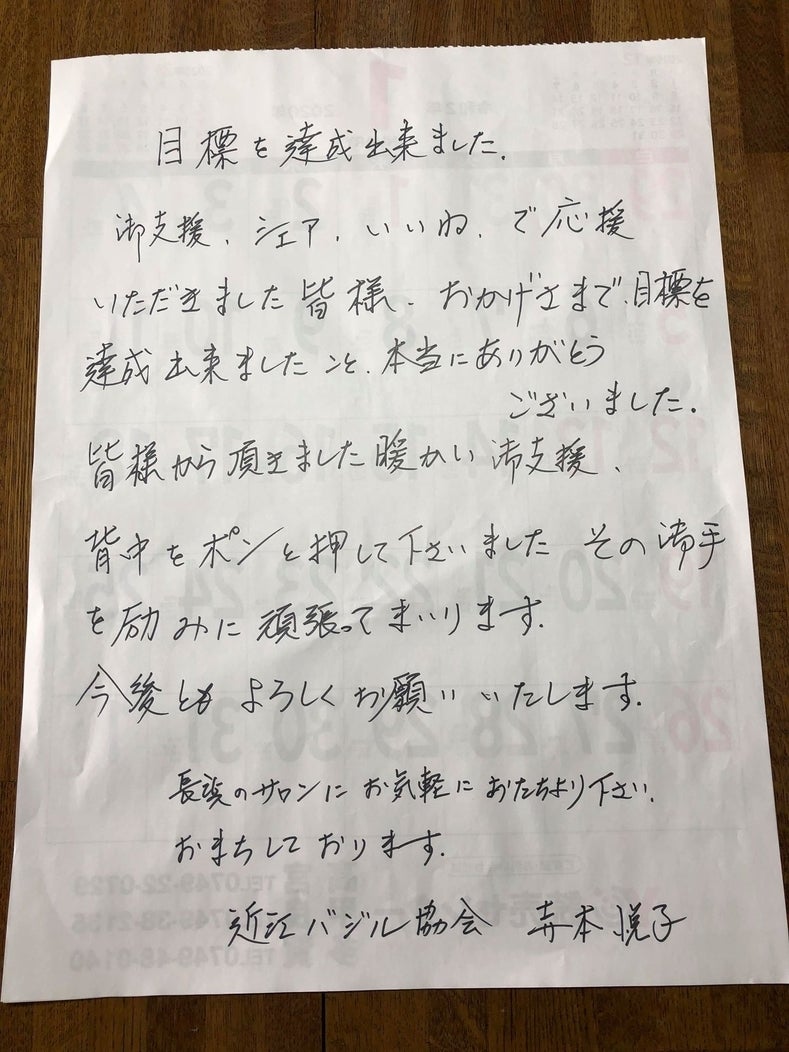 目標を達成出来ました.
御支援、シェア、いいね、で応援
いただきました皆様、おかげさまで、目標を
達成出来ましたこと、本当にありがとう
ございました.
皆様から頂きました暖かい御支援、
背中をポンと押して下さいました その御手
を励みに頑張ってまいります.
今後とも よろしくお願いいたします.
長浜のサロンに お気軽に おたちより下さい.
おまちしております.
近江バジル協会 寺本悦子